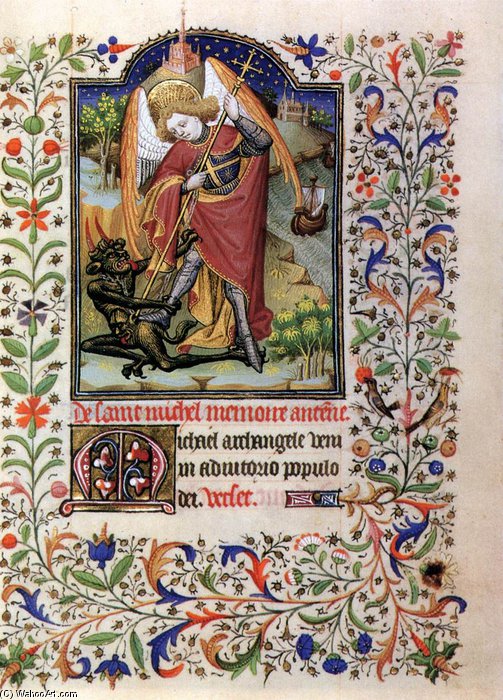 De saint michel memoire antene.
Michael archangele veni
in adiutorio populo
dei. Verset.
(C) WahooArt.com